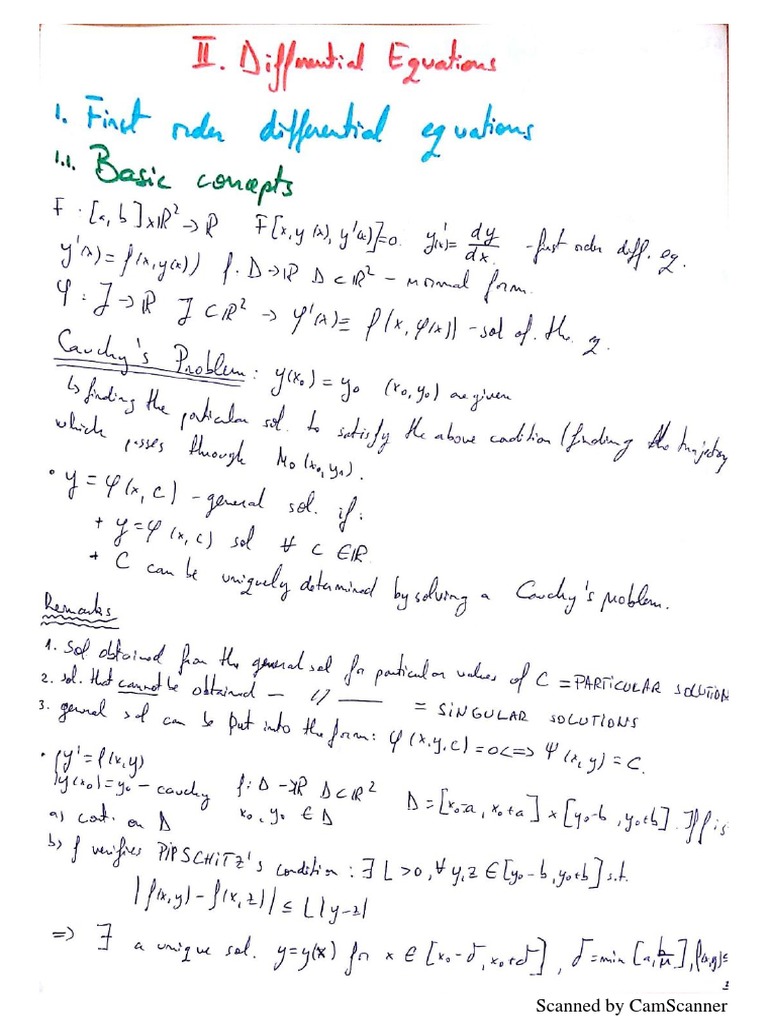 II. Differential Equations
1. First order differential equations
1.1. Basic concepts
F : [a, b] x ℝ² → ℝ F[x, y(x), y'(x)]=0. y'(x)= dy/dx - first order diff. eq.
y'(x) = f(x, y(x)) f: D → ℝ D ⊂ ℝ² - normal form.
φ : J → ℝ J ⊂ ℝ² → φ'(x) = f(x, φ(x)) - sol of. the q.
Cauchy's Problem: y(x₀) = y₀ (x₀, y₀) are given
↳ finding the particular sol. to satisfy the above condition (finding the trajectory
which passes through M₀(x₀, y₀).
• y = φ(x, C) - general sol. if:
+ y = φ(x, c) sol ∀ C ∈ ℝ.
+ C can be uniquely determined by solving a Cauchy's problem.
Remarks
1. Sol obtained from the general sol for particular values of C = PARTICULAR SOLUTION
2. sol. that cannot be obtained — // —— = SINGULAR SOLUTIONS
3. general sol can be put into the form: φ(x, y, c) = 0 <=> Ψ(x, y) = C.
• { y' = f(x, y)
y(x₀) = y₀ - cauchy f: D → ℝ D ⊂ ℝ² D = [x₀-a, x₀+a] × [y₀-b, y₀+b]. If f is
a) cont. on D x₀, y₀ ∈ D
b) f verifies PIPSCHITZ's condition : ∃ L > 0, ∀ y, z ∈ [y₀-b, y₀+b] s.t.
|f(x, y) - f(x, z)| ≤ L|y-z|
=> ∃ a unique sol. y = y(x) for x ∈ [x₀-δ, x₀+δ], δ = min [a, b/M], f(x,y) ≤
1
Scanned by CamScanner